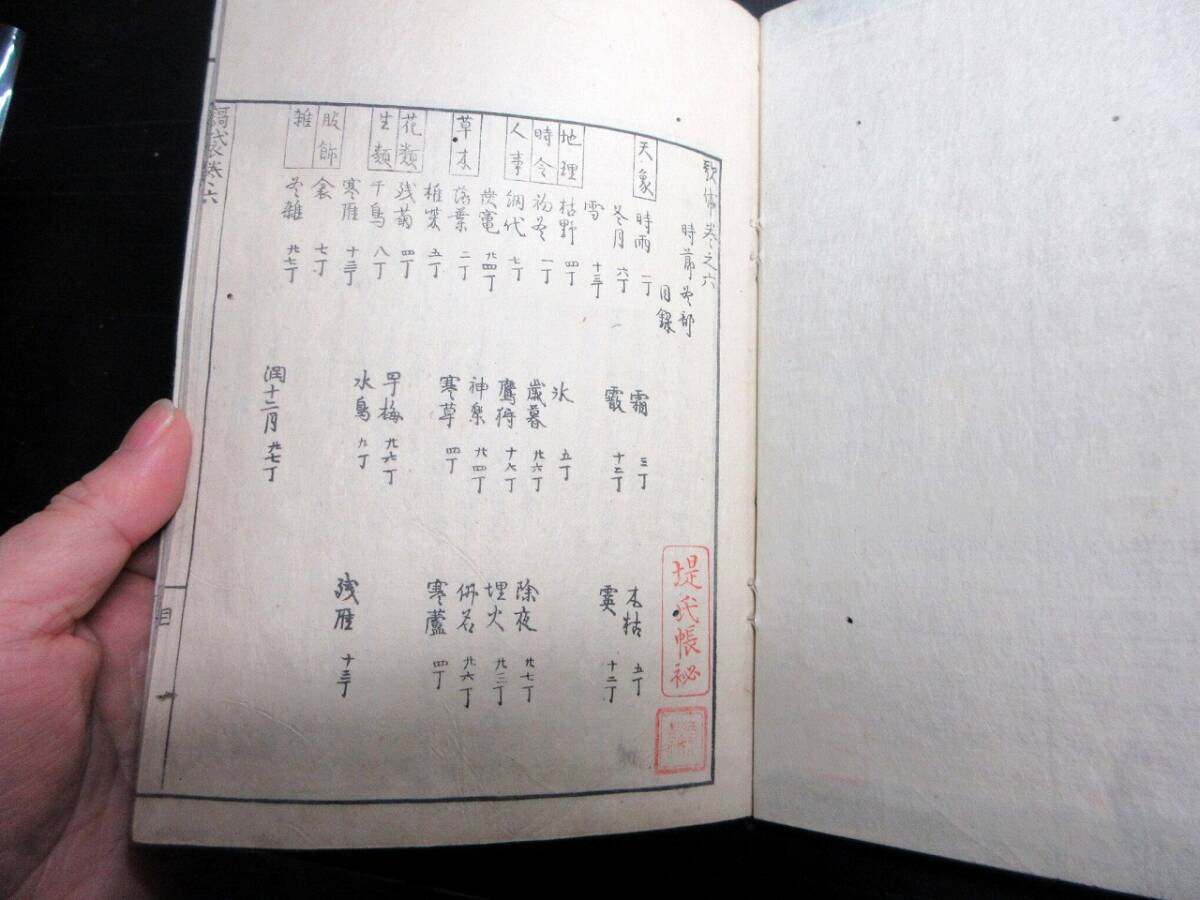 歌体巻之六
時節冬部
目録
天象 時雨 一丁 霜 三丁 木枯 五丁
冬月 六丁 霰 十二丁 霙 十二丁
雪 十三丁
地理 枯野 四丁 氷 五丁
時令 初冬 一丁 歳暮 廿六丁 除夜 廿七丁
人事 網代 七丁 鷹狩 十七丁 埋火 廿三丁
炭竃 廿四丁 神楽 廿四丁 仏名 廿六丁
草木 落葉 二丁 寒草 四丁 寒蘆 四丁
椎柴 五丁
花類 残菊 四丁 早梅 廿六丁
生類 千鳥 八丁 水鳥 九丁 残雁 十三丁
寒雁 十三丁
服飾 衾 七丁
雑 冬雑 廿七丁 潤十二月 廿七丁
巻六
目
堤氏帳祕